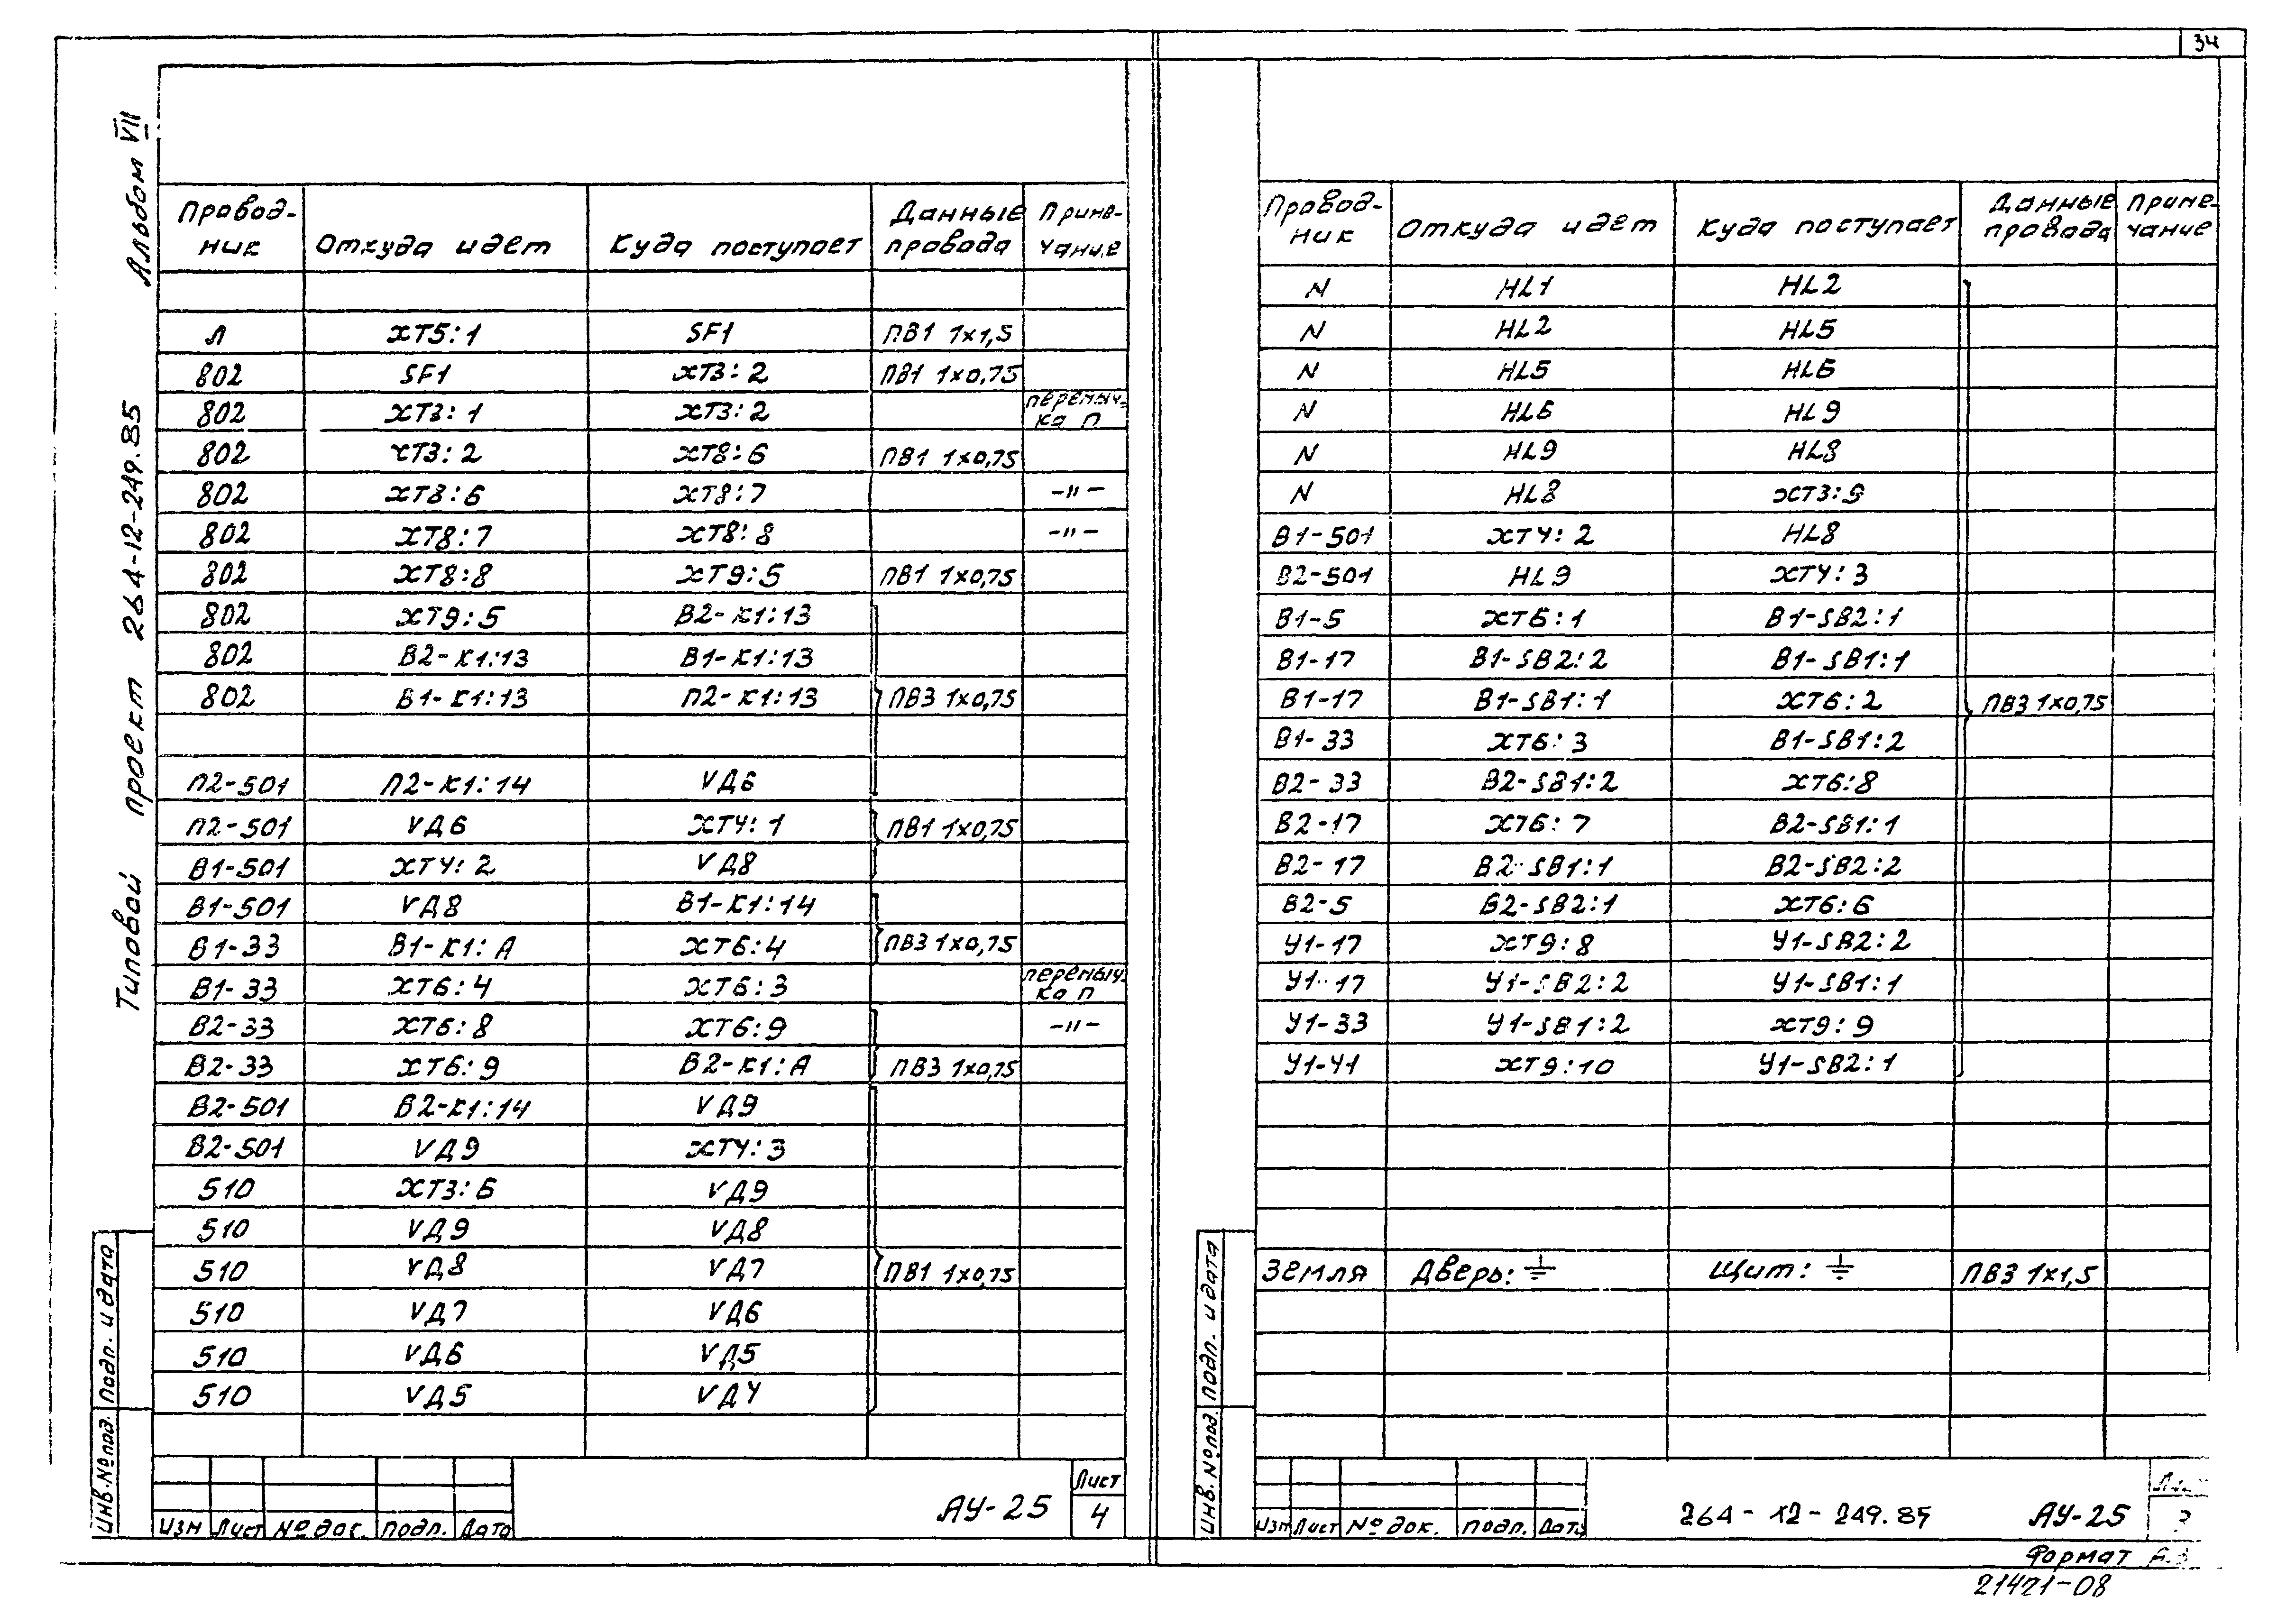 34
Альбом VII
Типовой проект 264-12-249.85
Провод-ник | Откуда идет | Куда поступает | Данные провода | Приме-чание
Л | ХТ5:1 | SF1 | ПВ1 1х1,5
802 | SF1 | ХТ3:2 | ПВ1 1х0,75
802 | ХТ3:1 | ХТ3:2 | | перемыч-ка П
802 | ХТ3:2 | ХТ8:6 | ПВ1 1х0,75
802 | ХТ8:6 | ХТ8:7 | | -"-
802 | ХТ8:7 | ХТ8:8 | | -"-
802 | ХТ8:8 | ХТ9:5 | ПВ1 1х0,75
802 | ХТ9:5 | В2-К1:13
802 | В2-К1:13 | В1-К1:13
802 | В1-К1:13 | П2-К1:13 | ПВ3 1х0,75
П2-501 | П2-К1:14 | VД6
П2-501 | VД6 | ХТ4:1 | ПВ1 1х0,75
В1-501 | ХТ4:2 | VД8
В1-501 | VД8 | В1-К1:14
В1-33 | В1-К1:А | ХТ6:4 | ПВ3 1х0,75
В1-33 | ХТ6:4 | ХТ6:3 | | перемыч-ка П
В2-33 | ХТ6:8 | ХТ6:9 | | -"-
В2-33 | ХТ6:9 | В2-К1:А | ПВ3 1х0,75
В2-501 | В2-К1:14 | VД9
В2-501 | VД9 | ХТ4:3
510 | ХТ3:6 | VД9
510 | VД9 | VД8
510 | VД8 | VД7 | ПВ1 1х0,75
510 | VД7 | VД6
510 | VД6 | VД5
510 | VД5 | VД4
Инв.№под. Подп. и дата
Изм Лист № док. Подп. Дата
АУ-25
Лист
4
Провод-ник | Откуда идет | Куда поступает | Данные провода | Приме-чание
N | HL1 | HL2
N | HL2 | HL5
N | HL5 | HL6
N | HL6 | HL9
N | HL9 | HL8
N | HL8 | ХТ3:9
В1-501 | ХТ4:2 | HL8
В2-501 | HL9 | ХТ4:3
В1-5 | ХТ6:1 | В1-SB2:1
В1-17 | В1-SB2:2 | В1-SB1:1
В1-17 | В1-SB1:1 | ХТ6:2 | ПВ3 1х0,75
В1-33 | ХТ6:3 | В1-SB1:2
В2-33 | В2-SB1:2 | ХТ6:8
В2-17 | ХТ6:7 | В2-SB1:1
В2-17 | В2-SB1:1 | В2-SB2:2
В2-5 | В2-SB2:1 | ХТ6:6
У1-17 | ХТ9:8 | У1-SB2:2
У1-17 | У1-SB2:2 | У1-SB1:1
У1-33 | У1-SB1:2 | ХТ9:9
У1-У1 | ХТ9:10 | У1-SB2:1
Земля | Дверь: ⏚ | Щит: ⏚ | ПВ3 1х1,5
Инв.№под. Подп. и дата
Изм Лист № док. Подп. Дата
264-12-249.85 АУ-25
Формат
21421-08